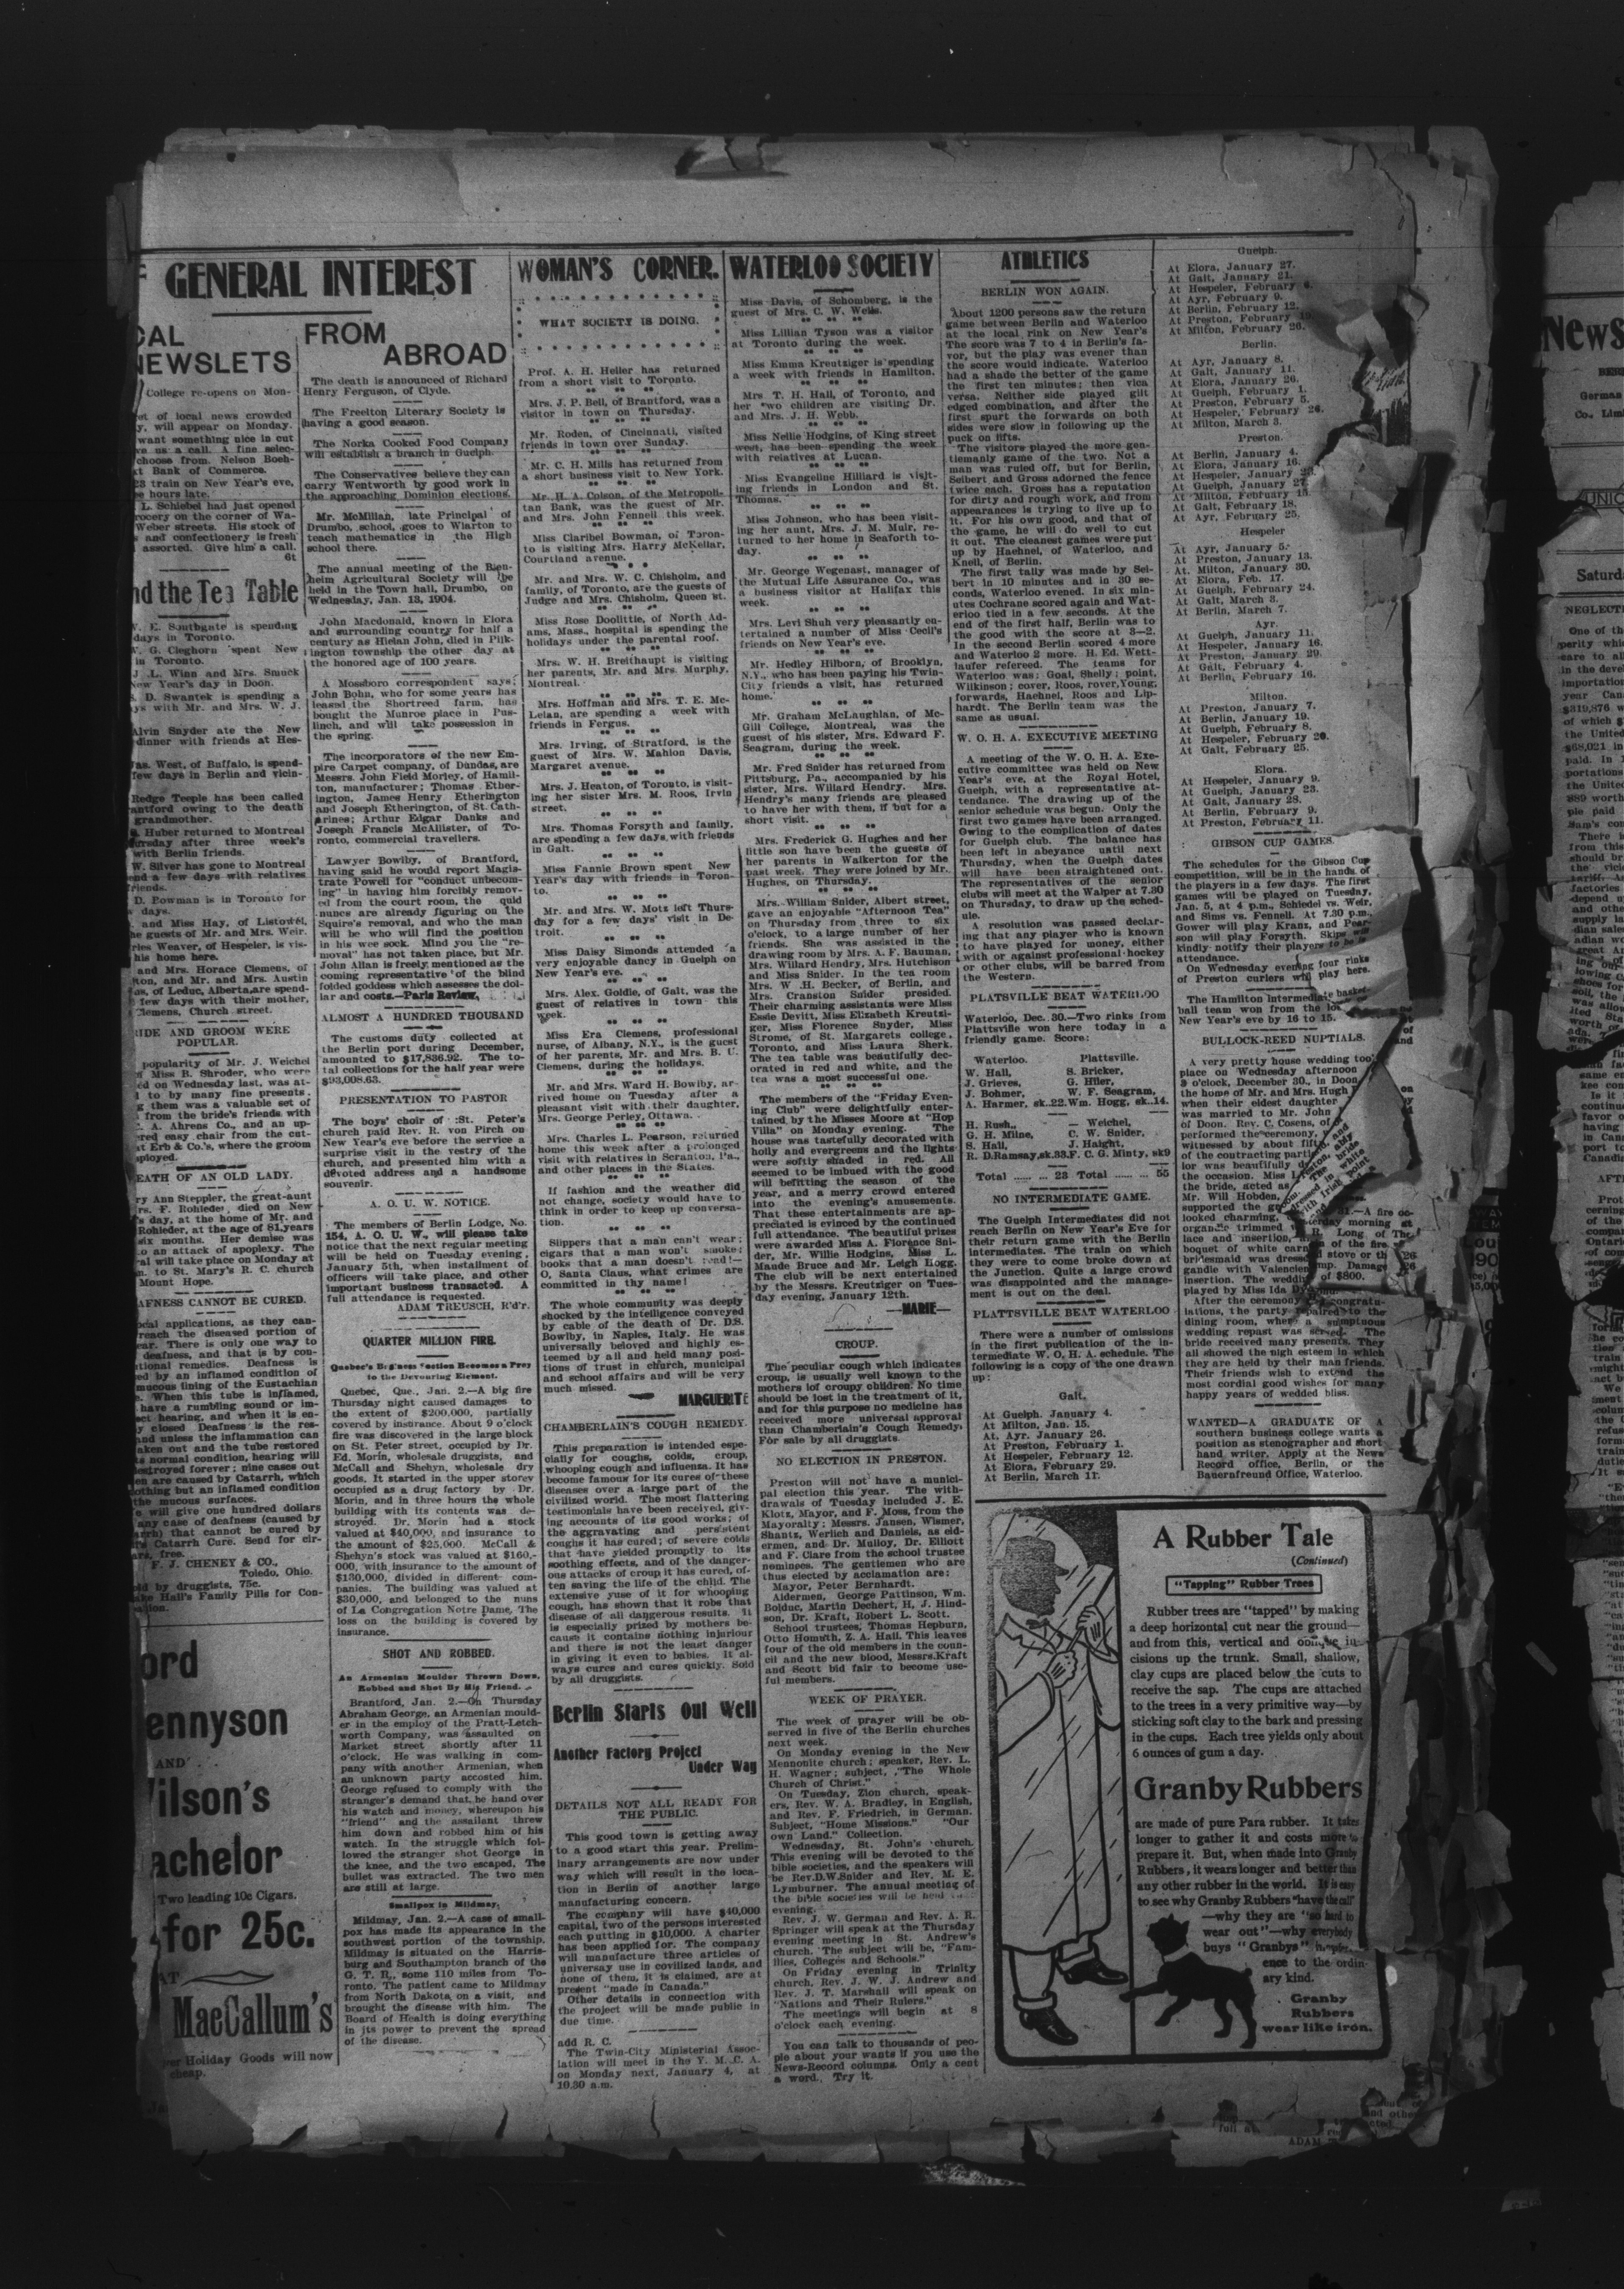 GENERAL INTEREST
CAL
NEWSLETS
College re-opens on Mon-
et of local news crowded
y, will appear on Monday.
want something nice in cut
ve us a call. A fine selec-
choose from. Nelson Boeh-
Bank of Commerce.
23 train on New Year's eve,
hours late.
L. Schiebel had just opened
rocery on the corner of Wa-
Weber streets. His stock of
s and confectionery is fresh
assorted. Give him a call.
6t
nd the Tea Table
E. Southgate is spending
days in Toronto.
G. Cleghorn spent New
in Toronto.
J .L. Winn and Mrs. Smuck
New Year's day in Doon.
D. Swantek is spending a
ys with Mr. and Mrs. W. J.
Alvin Snyder ate the New
dinner with friends at Hes-
as. West, of Buffalo, is spend-
few days in Berlin and vicin-
Redge Teeple has been called
antford owing to the death
grandmother.
Huber returned to Montreal
ursday after three week's
with Berlin friends.
W. Silver has gone to Montreal
end a few days with relatives
friends.
D. Bowman is in Toronto for
days.
and Miss Hay, of Listowel,
he guests of Mr. and Mrs. Weir.
rles Weaver, of Hespeler, is vis-
his home here.
and Mrs. Horace Clemens, of
ton, and Mr. and Mrs. Austin
as, of Leduc, Alberta,are spend-
few days with their mother,
Clemens, Church street.
RIDE AND GROOM WERE
POPULAR.
popularity of Mr. J. Weichel
f Miss B. Shroder, who were
ed on Wednesday last, was at-
to by many fine presents.
g them was a valuable set of
from the bride's friends with
A. Ahrens Co., and an up-
red easy chair from the cut-
at Erb & Co.'s, where the groom
mployed.
EATH OF AN OLD LADY.
ry Ann Steppler, the great-aunt
rs. F. Rohleder, died on New
's day, at the home of Mr. and
Rohleder, at the age of 81 years
six months. Her demise was
to an attack of apoplexy. The
ral will take place on Monday at
m. to St. Mary's R. C. church
Mount Hope.
AFNESS CANNOT BE CURED.
ocal applications, as they can-
reach the diseased portion of
ear. There is only one way to
deafness, and that is by con-
tional remedies. Deafness is
ed by an inflamed condition of
mucous lining of the Eustachian
When this tube is inflamed,
have a rumbling sound or im-
ect hearing, and when it is en-
y closed Deafness is the res-
and unless the inflammation can
aken out and the tube restored
ts normal condition, hearing will
estroyed forever; nine cases out
en are caused by Catarrh, which
othing but an inflamed condition
the mucous surfaces.
will give one hundred dollars
any case of deafness (caused by
arrh) that cannot be cured by
Catarrh Cure. Send for cir-
free.
F. J. CHENEY & CO.,
Toledo, Ohio.
old by druggists, 75c.
ake Hall's Family Pills for Con-
ation.
ord
ennyson
AND
Wilson's
achelor
Two leading 10c Cigars.
for 25c.
AT
MacCallum's
Holiday Goods will now
cheap.
FROM
ABROAD
The death is announced of Richard
Henry Ferguson, of Clyde.
The Freelton Literary Society is
having a good season.
The Norka Cooked Food Company
will establish a branch in Guelph.
The Conservatives believe they can
carry Wentworth by good work in
the approaching Dominion elections.
Mr. McMillan, late Principal of
Drumbo, school, goes to Wiarton to
teach mathematics in the High
school there.
The annual meeting of the Blen-
heim Agricultural Society will be
held in the Town hall, Drumbo, on
Wednesday, Jan. 13, 1904.
John Macdonald, known in Elora
and surrounding country for half a
century as Hielan John, died in Pilk-
ington township the other day at
the honored age of 100 years.
A Mossboro correspondent says:
John Bohn, who for some years has
leased the Shortreed farm, has
bought the Munroe place in Pus-
linch, and will take possession in
the spring.
The incorporators of the new Em-
pire Carpet company, of Dundas, are
Messrs. John Field Morley, of Hamil-
ton, manufacturer; Thomas Ether-
ington, James Henry Etherington
and Joseph Etherington, of St. Cath-
arines; Arthur Edgar Danks and
Joseph Francis McAllister, of To-
ronto, commercial travellers.
Lawyer Bowlby, of Brantford,
having said he would report Magis-
trate Powell for "conduct unbecom-
ing" in having him forcibly remov-
ed from the court room, the quid
nuncs are already figuring on the
Squire's removal, and who the man
will be who will find the position
in his wee sock. Mind you the "re-
moval" has not taken place, but Mr.
John Allan is freely mentioned as the
coming representative of the blind
folded goddess which assesses the dol-
lar and costs.—Paris Review.
ALMOST A HUNDRED THOUSAND
The customs duty collected at
the Berlin port during December,
amounted to $17,836.92. The to-
tal collections for the half year were
$93,008.63.
PRESENTATION TO PASTOR
The boys' choir of St. Peter's
church paid Rev. R. von Pirch on
New Year's eve before the service a
surprise visit in the vestry of the
church, and presented him with a
devoted address and a handsome
souvenir.
A. O. U. W. NOTICE.
The members of Berlin Lodge, No.
154, A. O. U. W., will please take
notice that the next regular meeting
will be held on Tuesday evening,
January 5th, when installment of
officers will take place, and other
important business transacted. A
full attendance is requested.
ADAM TREUSCH, R'd'r.
QUARTER MILLION FIRE.
Quebec's Business Section Becomes a Prey
to the Devouring Element.
Quebec, Que., Jan. 2.—A big fire
Thursday night caused damages to
the extent of $200,000, partially
covered by insurance. About 9 o'clock
fire was discovered in the large block
on St. Peter street, occupied by Dr.
Ed. Morin, wholesale druggists, and
McCall and Shehyn, wholesale dry
goods. It started in the upper storey
occupied as a drug factory by Dr.
Morin, and in three hours the whole
building with its contents was de-
stroyed. Dr. Morin had a stock
valued at $40,000, and insurance to
the amount of $25,000. McCall &
Shehyn's stock was valued at $160,-
000, with insurance to the amount of
$130,000, divided in different com-
panies. The building was valued at
$30,000, and belonged to the nuns
of La Congregation Notre Dame. The
loss on the building is covered by
insurance.
SHOT AND ROBBED.
An Armenian Moulder Thrown Down,
Robbed and Shot By His Friend.
Brantford, Jan. 2.—On Thursday
Abraham George, an Armenian mould-
er in the employ of the Pratt-Letch-
worth Company, was assaulted on
Market street shortly after 11
o'clock. He was walking in com-
pany with another Armenian, when
an unknown party accosted him.
George refused to comply with the
stranger's demand that he hand over
his watch and money, whereupon his
"friend" and the assailant threw
him down and robbed him of his
watch. In the struggle which fol-
lowed the stranger shot George in
the knee, and the two escaped. The
bullet was extracted. The two men
are still at large.
Smallpox in Mildmay.
Mildmay, Jan. 2.—A case of small-
pox has made its appearance in the
southwest portion of the township.
Mildmay is situated on the Harris-
burg and Southampton branch of the
G. T. R., some 110 miles from To-
ronto. The patient came to Mildmay
from North Dakota on a visit, and
brought the disease with him. The
Board of Health is doing everything
in its power to prevent the spread
of the disease.
WOMAN'S CORNER.
WHAT SOCIETY IS DOING.
Prof. A. H. Heller has returned
from a short visit to Toronto.
Mrs. J. P. Bell, of Brantford, was a
visitor in town on Thursday.
Mr. Roden, of Cincinnati, visited
friends in town over Sunday.
Mr. C. H. Mills has returned from
a short business visit to New York.
Mr. H. A. Colson, of the Metropoli-
tan Bank, was the guest of Mr.
and Mrs. John Fennell this week.
Miss Claribel Bowman, of Toron-
to is visiting Mrs. Harry McKellar,
Courtland avenue.
Mr. and Mrs. W. C. Chisholm, and
family, of Toronto, are the guests of
Judge and Mrs. Chisholm, Queen st.
Miss Rose Doolittle, of North Ad-
ams, Mass., hospital is spending the
holidays under the parental roof.
Mrs. W. H. Breithaupt is visiting
her parents, Mr. and Mrs. Murphy,
Montreal.
Mrs. Hoffman and Mrs. T. E. Mc-
Lelan, are spending a week with
friends in Fergus.
Mrs. Irving, of Stratford, is the
guest of Mrs. W. Mahlon Davis,
Margaret avenue.
Mrs. J. Heaton, of Toronto, is visit-
ing her sister Mrs. M. Roos, Irvin
street.
Mrs. Thomas Forsyth and family,
are spending a few days with friends
in Galt.
Miss Fannie Brown spent New
Year's day with friends in Toron-
to.
Mr. and Mrs. W. Motz left Thurs-
day for a few days' visit in De-
troit.
Miss Daisy Simonds attended a
very enjoyable dancy in Guelph on
New Year's eve.
Mrs. Alex. Goldie, of Galt, was the
guest of relatives in town this
week.
Miss Era Clemens, professional
nurse, of Albany, N.Y., is the guest
of her parents, Mr. and Mrs. B. U.
Clemens, during the holidays.
Mr. and Mrs. Ward H. Bowlby, ar-
rived home on Tuesday after a
pleasant visit with their daughter,
Mrs. George Perley, Ottawa.
Mrs. Charles L. Pearson, returned
home this week after a prolonged
visit with relatives in Scranton, Pa.,
and other places in the States.
If fashion and the weather did
not change, society would have to
think in order to keep up conversa-
tion.
Slippers that a man can't wear;
cigars that a man won't smoke;
books that a man doesn't read!—
O, Santa Claus, what crimes are
committed in thy name!
The whole community was deeply
shocked by the intelligence conveyed
by cable of the death of Dr. D.S.
Bowlby, in Naples, Italy. He was
universally beloved and highly es-
teemed by all and held many posi-
tions of trust in church, municipal
and school affairs and will be very
much missed.
MARGUERITE
CHAMBERLAIN'S COUGH REMEDY.
This preparation is intended espe-
cially for coughs, colds, croup,
whooping cough and influenza. It has
become famous for its cures of these
diseases over a large part of the
civilized world. The most flattering
testimonials have been received, giv-
ing accounts of its good works; of
the aggravating and persistent
coughs it has cured; of severe colds
that have yielded promptly to its
soothing effects, and of the danger-
ous attacks of croup it has cured, of-
ten saving the life of the child. The
extensive yuse of it for whooping
cough, has shown that it robs that
disease of all dangerous results. It
is especially prized by mothers be-
cause it contains nothing injuriour
and there is not the least danger
in giving it even to babies. It al-
ways cures and cures quickly. Sold
by all druggists.
Berlin Starts Out Well
Another Factory Project
Under Way
DETAILS NOT ALL READY FOR
THE PUBLIC.
This good town is getting away
to a good start this year. Prelim-
inary arrangements are now under
way which will result in the loca-
tion in Berlin of another large
manufacturing concern.
The company will have $40,000
capital, two of the persons interested
each putting in $10,000. A charter
has been applied for. The company
will manufacture three articles of
universay use in covilized lands, and
none of them, it is claimed, are at
present "made in Canada."
Other details in connection with
the project will be made public in
due time.
add R. C.
The Twin-City Ministerial Assoc-
iation will meet in the Y. M. C. A.
on Monday next, January 4, at
10.30 a.m.
WATERLOO SOCIETY
Miss Davis, of Schomberg, is the
guest of Mrs. C. W. Wells.
Miss Lillian Tyson was a visitor
at Toronto during the week.
Miss Emma Kreutziger is spending
a week with friends in Hamilton.
Mrs T. H. Hall, of Toronto, and
her two children are visiting Dr.
and Mrs. J. H. Webb.
Miss Nellie Hodgins, of King street
west, has been spending the week
with relatives at Lucan.
Miss Evangeline Hilliard is visit-
ing friends in London and St.
Thomas.
Miss Johnson, who has been visit-
ing her aunt, Mrs. J. M. Muir, re-
turned to her home in Seaforth to-
day.
Mr. George Wegenast, manager of
the Mutual Life Assurance Co., was
a business visitor at Halifax this
week.
Mrs. Levi Shuh very pleasantly en-
tertained a number of Miss Cecil's
friends on New Year's eve.
Mr. Hedley Hilborn, of Brooklyn,
N.Y., who has been paying his Twin-
City friends a visit, has returned
home.
Mr. Graham McLaughlan, of Mc-
Gill College, Montreal, was the
guest of his sister, Mrs. Edward F.
Seagram, during the week.
Mr. Fred Snider has returned from
Pittsburg, Pa., accompanied by his
sister, Mrs. Willard Hendry. Mrs.
Hendry's many friends are pleased
to have her with them, if but for a
short visit.
Mrs. Frederick G. Hughes and her
little son have been the guests of
her parents in Walkerton for the
past week. They were joined by Mr.
Hughes, on Thursday.
Mrs. William Snider, Albert street,
gave an enjoyable "Afternoon Tea"
on Thursday from three to six
o'clock, to a large number of her
friends. She was assisted in the
drawing room by Mrs. A. F. Bauman,
Mrs. Willard Hendry, Mrs. Hutchison
and Miss Snider. In the tea room
Mrs. W .H. Becker, of Berlin, and
Mrs. Cranston Snider presided.
Their charming assistants were Miss
Essie Devitt, Miss Elizabeth Kreutzi-
ger, Miss Florence Snyder, Miss
Strome, of St. Margarets college,
Toronto, and Miss Laura Sherk.
The tea table was beautifully dec-
orated in red and white, and the
tea was a most successful one.
The members of the "Friday Even-
ing Club" were delightfully enter-
tained by the Misses Moore at "Hop
Villa" on Monday evening. The
house was tastefully decorated with
holly and evergreens and the lights
were softly shaded in red. All
seemed to be imbued with the good
will befitting the season of the
year, and a merry crowd entered
into the evening's amusements.
That these entertainments are ap-
preciated is evinced by the continued
full attendance. The beautiful prizes
were awarded Miss A. Florence Sni-
der, Mr. Willie Hodgins, Miss L.
Maude Bruce and Mr. Leigh Hogg.
The club will be next entertained
by the Messrs. Kreutziger on Tues-
day evening, January 12th.
—MARIE—
CROUP.
The peculiar cough which indicates
croup, is usually well known to the
mothers lof croupy children. No time
should be lost in the treatment of it,
and for this purpose no medicine has
received more universal approval
than Chamberlain's Cough Remedy.
For sale by all druggists.
NO ELECTION IN PRESTON.
Preston will not have a munici-
pal election this year. The with-
drawals of Tuesday included J. E.
Klotz, Mayor, and F. Moss, from the
Mayoralty; Messrs. Jansen, Wismer,
Shantz, Werlich and Daniels, as eld-
ermen, and Dr. Mulloy, Dr. Elliott
and F. Clare from the school trustee
nominees. The gentlemen who are
thus elected by acclamation are:
Mayor, Peter Bernhardt.
Aldermen, George Pattinson, Wm.
Bolduc, Martin Dechert, H. J. Hind-
son, Dr. Kraft, Robert L. Scott.
School trustees, Thomas Hepburn,
Otto Homuth, Z. A. Hall. This leaves
four of the old members in the coun-
cil and the new blood, Messrs.Kraft
and Scott bid fair to become use-
ful members.
WEEK OF PRAYER.
The week of prayer will be ob-
served in five of the Berlin churches
next week.
On Monday evening in the New
Mennonite church; speaker, Rev. L.
H. Wagner; subject, "The Whole
Church of Christ."
On Tuesday, Zion church, speak-
ers, Rev. W. A. Bradley, in English,
and Rev. F. Friedrich, in German.
Subject, "Home Missions." "Our
own Land." Collection.
Wednesday, St. John's church.
This evening will be devoted to the
bible societies, and the speakers will
be Rev.D.W.Snider and Rev. M. E.
Lymburner. The annual meeting of
the bible societies will be held
evening.
Rev. J. W. German and Rev. A. R.
Springer will speak at the Thursday
evening meeting in St. Andrew's
church. The subject will be, "Fam-
ilies, Colleges and Schools."
On Friday evening in Trinity
church, Rev. J. W. J. Andrew and
Rev. J. T. Marshall will speak on
"Nations and Their Rulers."
The meetings will begin at 8
o'clock each evening.
You can talk to thousands of peo-
ple about your wants if you use the
News-Record columns. Only a cent
a word. Try it.
ATHLETICS
BERLIN WON AGAIN.
About 1200 persons saw the return
game between Berlin and Waterloo
at the local rink on New Year's
The score was 7 to 4 in Berlin's fa-
vor, but the play was evener than
the score would indicate. Waterloo
had a shade the better of the game
the first ten minutes; then vica
versa. Neither side played gilt
edged combination, and after the
first spurt the forwards on both
sides were slow in following up the
puck on lifts.
The visitors played the more gen-
tlemanly game of the two. Not a
man was ruled off, but for Berlin,
Seibert and Gross adorned the fence
twice each. Gross has a reputation
for dirty and rough work, and from
appearances is trying to live up to
it. For his own good, and that of
the game, he will do well to cut
it out. The cleanest games were put
up by Haehnel, of Waterloo, and
Knell, of Berlin.
The first tally was made by Sei-
bert in 10 minutes and in 30 se-
conds, Waterloo evened. In six min-
utes Cochrane scored again and Wat-
erloo tied in a few seconds. At the
end of the first half, Berlin was to
the good with the score at 3—2.
In the second Berlin scored 4 more
and Waterloo 2 more. H. Ed. Wett-
laufer refereed. The teams for
Waterloo was: Goal, Shelly; point,
Wilkinson; cover, Roos, rover,Young,
forwards, Haehnel, Roos and Lip-
hardt. The Berlin team was the
same as usual.
W. O. H. A. EXECUTIVE MEETING
A meeting of the W. O. H. A. Exe-
cutive committee was held on New
Year's eve, at the Royal Hotel,
Guelph, with a representative at-
tendance. The drawing up of the
senior schedule was begun. Only the
first two games have been arranged.
Owing to the complication of dates
for Guelph club. The balance has
been left in abeyance until next
Thursday, when the Guelph dates
will have been straightened out.
The representatives of the senior
clubs will meet at the Walper at 7.30
on Thursday, to draw up the sched-
ule.
A resolution was passed declar-
ing that any player who is known
to have played for money, either
with or against professional hockey
or other clubs, will be barred from
the Western.
PLATSVILLE BEAT WATERLOO
Waterloo, Dec. 30.—Two rinks from
Plattsville won here today in a
friendly game. Score:
Waterloo. Plattsville.
W. Hall, S. Bricker,
J. Grieves, G. Hiler,
J. Bohmer, W. F. Seagram,
A. Harmer, sk..22.Wm. Hogg, sk..14.
H. Rush,, — Weichel,
G. H. Milne, C. W. Snider,
S. Hall, J. Haight,
R. D.Ramsay,sk.33.F. C. G. Minty, sk9
Total ...... ... 23 Total ...... ... 55
NO INTERMEDIATE GAME.
The Guelph Intermediates did not
reach Berlin on New Year's Eve for
their return game with the Berlin
intermediates. The train on which
they were to come broke down at
the Junction. Quite a large crowd
was disappointed and the manage-
ment is out on the deal.
PLATTSVILLE BEAT WATERLOO
There were a number of omissions
in the first publication of the in-
termediate W. O. H. A. schedule. The
following is a copy of the one drawn
up:
Galt.
At Guelph, January 4.
At Milton, Jan. 15.
At. Ayr. January 26.
At Preston, February 1.
At Hespeler, February 12.
At Elora, February 29.
At Berlin, March 11.
Guelph.
At Elora, January 27.
At Galt, January 21.
At Hespeler, February 6.
At Ayr, February 9.
At Berlin, February 12.
At Preston, February 19.
At Milton, February 26.
Berlin.
At Ayr, January 8.
At Galt, January 11.
At Elora, January 26.
At Guelph, February 1.
At Preston, February 5.
At Hespeler, February 26.
At Milton, March 3.
Preston.
At Berlin, January 4.
At Elora, January 16.
At Hespeler, January
At Guelph, January 27
At Milton, February 15.
At Galt, February 18.
At Ayr, February 25.
Hespeler
At Ayr, January 5.
At Preston, January 13.
At. Milton, January 30.
At Elora, Feb. 17.
At Guelph, February 24.
At Galt, March 3.
At Berlin, March 7.
Ayr.
At Guelph, January 11.
At Hespeler, January 16.
At Preston, January 29.
At Galt, February 4.
At Berlin, February 16.
Milton.
At Preston, January 7.
At Berlin, January 19.
At Guelph, February 8.
At Hespeler, February 20.
At Galt, February 25.
Elora.
At Hespeler, January 9.
At Guelph, January 23.
At Galt, January 28.
At Berlin, February 9.
At Preston, February 11.
GIBSON CUP GAMES.
The schedules for the Gibson Cup
competition, will be in the hands of
the players in a few days. The first
games will be played on Tuesday,
Jan. 5, at 4 p.m., Schiedel vs. Weir,
and Sims vs. Fennell. At 7.30 p.m.,
Gower will play Kranz, and Pear-
son will play Forsyth. Skips will
kindly notify their players to be in
attendance.
On Wednesday evening four rinks
of Preston curlers will play here.
The Hamilton Intermediate basket-
ball team won from the
New Year's eve by 16 to 15.
BULLOCK-REED NUPTIALS.
A very pretty house wedding took
place on Wednesday afternoon
o'clock, December 30., in Doon
the home of Mr. and Mrs. Hugh
when their eldest daughter
was married to Mr. John
of Doon. Rev. C. Cosens, of
performed the ceremony,
witnessed by about fifth
of the contracting parti
lor was beautifully d
the occasion. Miss
the bride, acted as
Mr. Will Hobden,
supported the g
looked charming,
organdie trimmed
lace and insertion,
boquet of white carn
bridesmaid was dress
gandie with Valencien
insertion. The wedding
played by Miss Ida
After the ceremony congratu-
lations, the party repaired to the
dining room, where a sumptuous
wedding repast was served. The
bride received many presents. They
all showed the nigh esteem in which
they are held by their man friends.
Their friends wish to extend the
most cordial good wishes for many
happy years of wedded bliss.
WANTED—A GRADUATE OF A
southern business college wants a
position as stenographer and short
hand, writer. Apply at the News
Record office, Berlin, or the
Bauernfreund Office, Waterloo.
A Rubber Tale
(Continued)
"Tapping" Rubber Trees
Rubber trees are "tapped" by making
a deep horizontal cut near the ground—
and from this, vertical and oblique in-
cisions up the trunk. Small, shallow,
clay cups are placed below the cuts to
receive the sap. The cups are attached
to the trees in a very primitive way—by
sticking soft clay to the bark and pressing
in the cups. Each tree yields only about
6 ounces of gum a day.
Granby Rubbers
are made of pure Para rubber. It takes
longer to gather it and costs more to
prepare it. But, when made into Granby
Rubbers, it wears longer and better than
any other rubber in the world. It is easy
to see why Granby Rubbers "have the call"
—why they are "so hard to
wear out"—why everybody
buys "Granbys" in
ence to the ordin-
ary kind.
Granby
Rubbers
wear like iron.
News
German
Co., Lim
UNIO
Saturd
NEGLECT